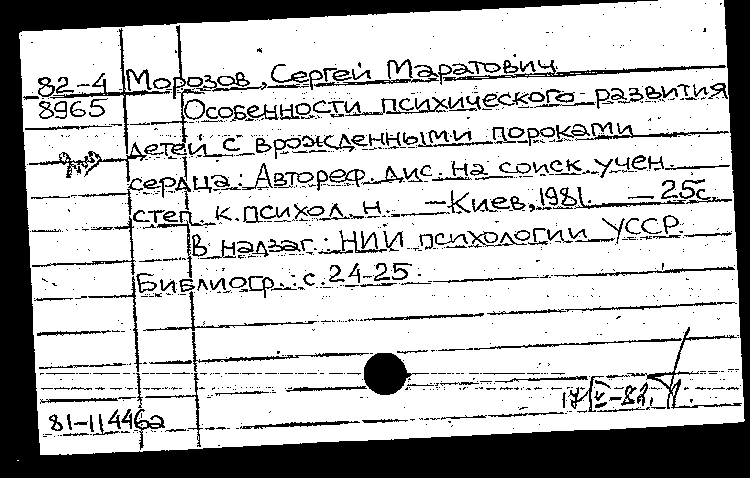 82-4 Морозов, Сергей Маратович
8965 Особенности психического развития
детей с врожденными пороками
сердца: Автореф. дис. на соиск. учен.
степ. к. психол. н. — Киев, 1981. — 25с.
В надзаг.: НИИ психологии УССР.
Библиогр.: с. 24-25.
81-11446а